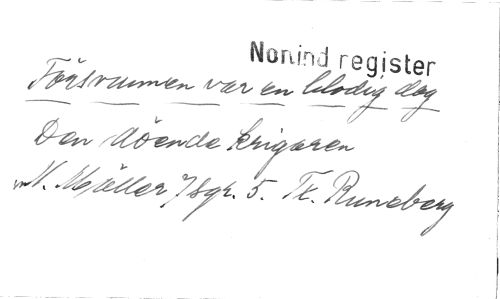 Nonind register
Försvunnen var en blodig dag
Den döende krigaren
Möller 7 Sgr. 5. Tx. Runeberg